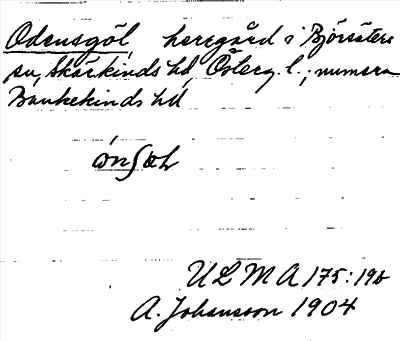 Odensgöl, herrgård i Björsäters
sn, Skärkinds hd, Österg. l.; numera
Bankekinds hd
ULMA 175:19b
A. Johansson 1904